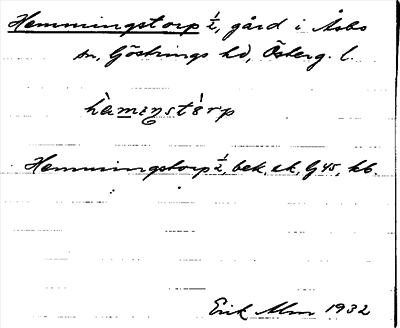 Hemmingstorp ½, gård i Åsbo
sn, Göstrings hd, Österg. l.
Hemmingstorp ½, bek, ek, G 45, kb.
Erik Alm 1932